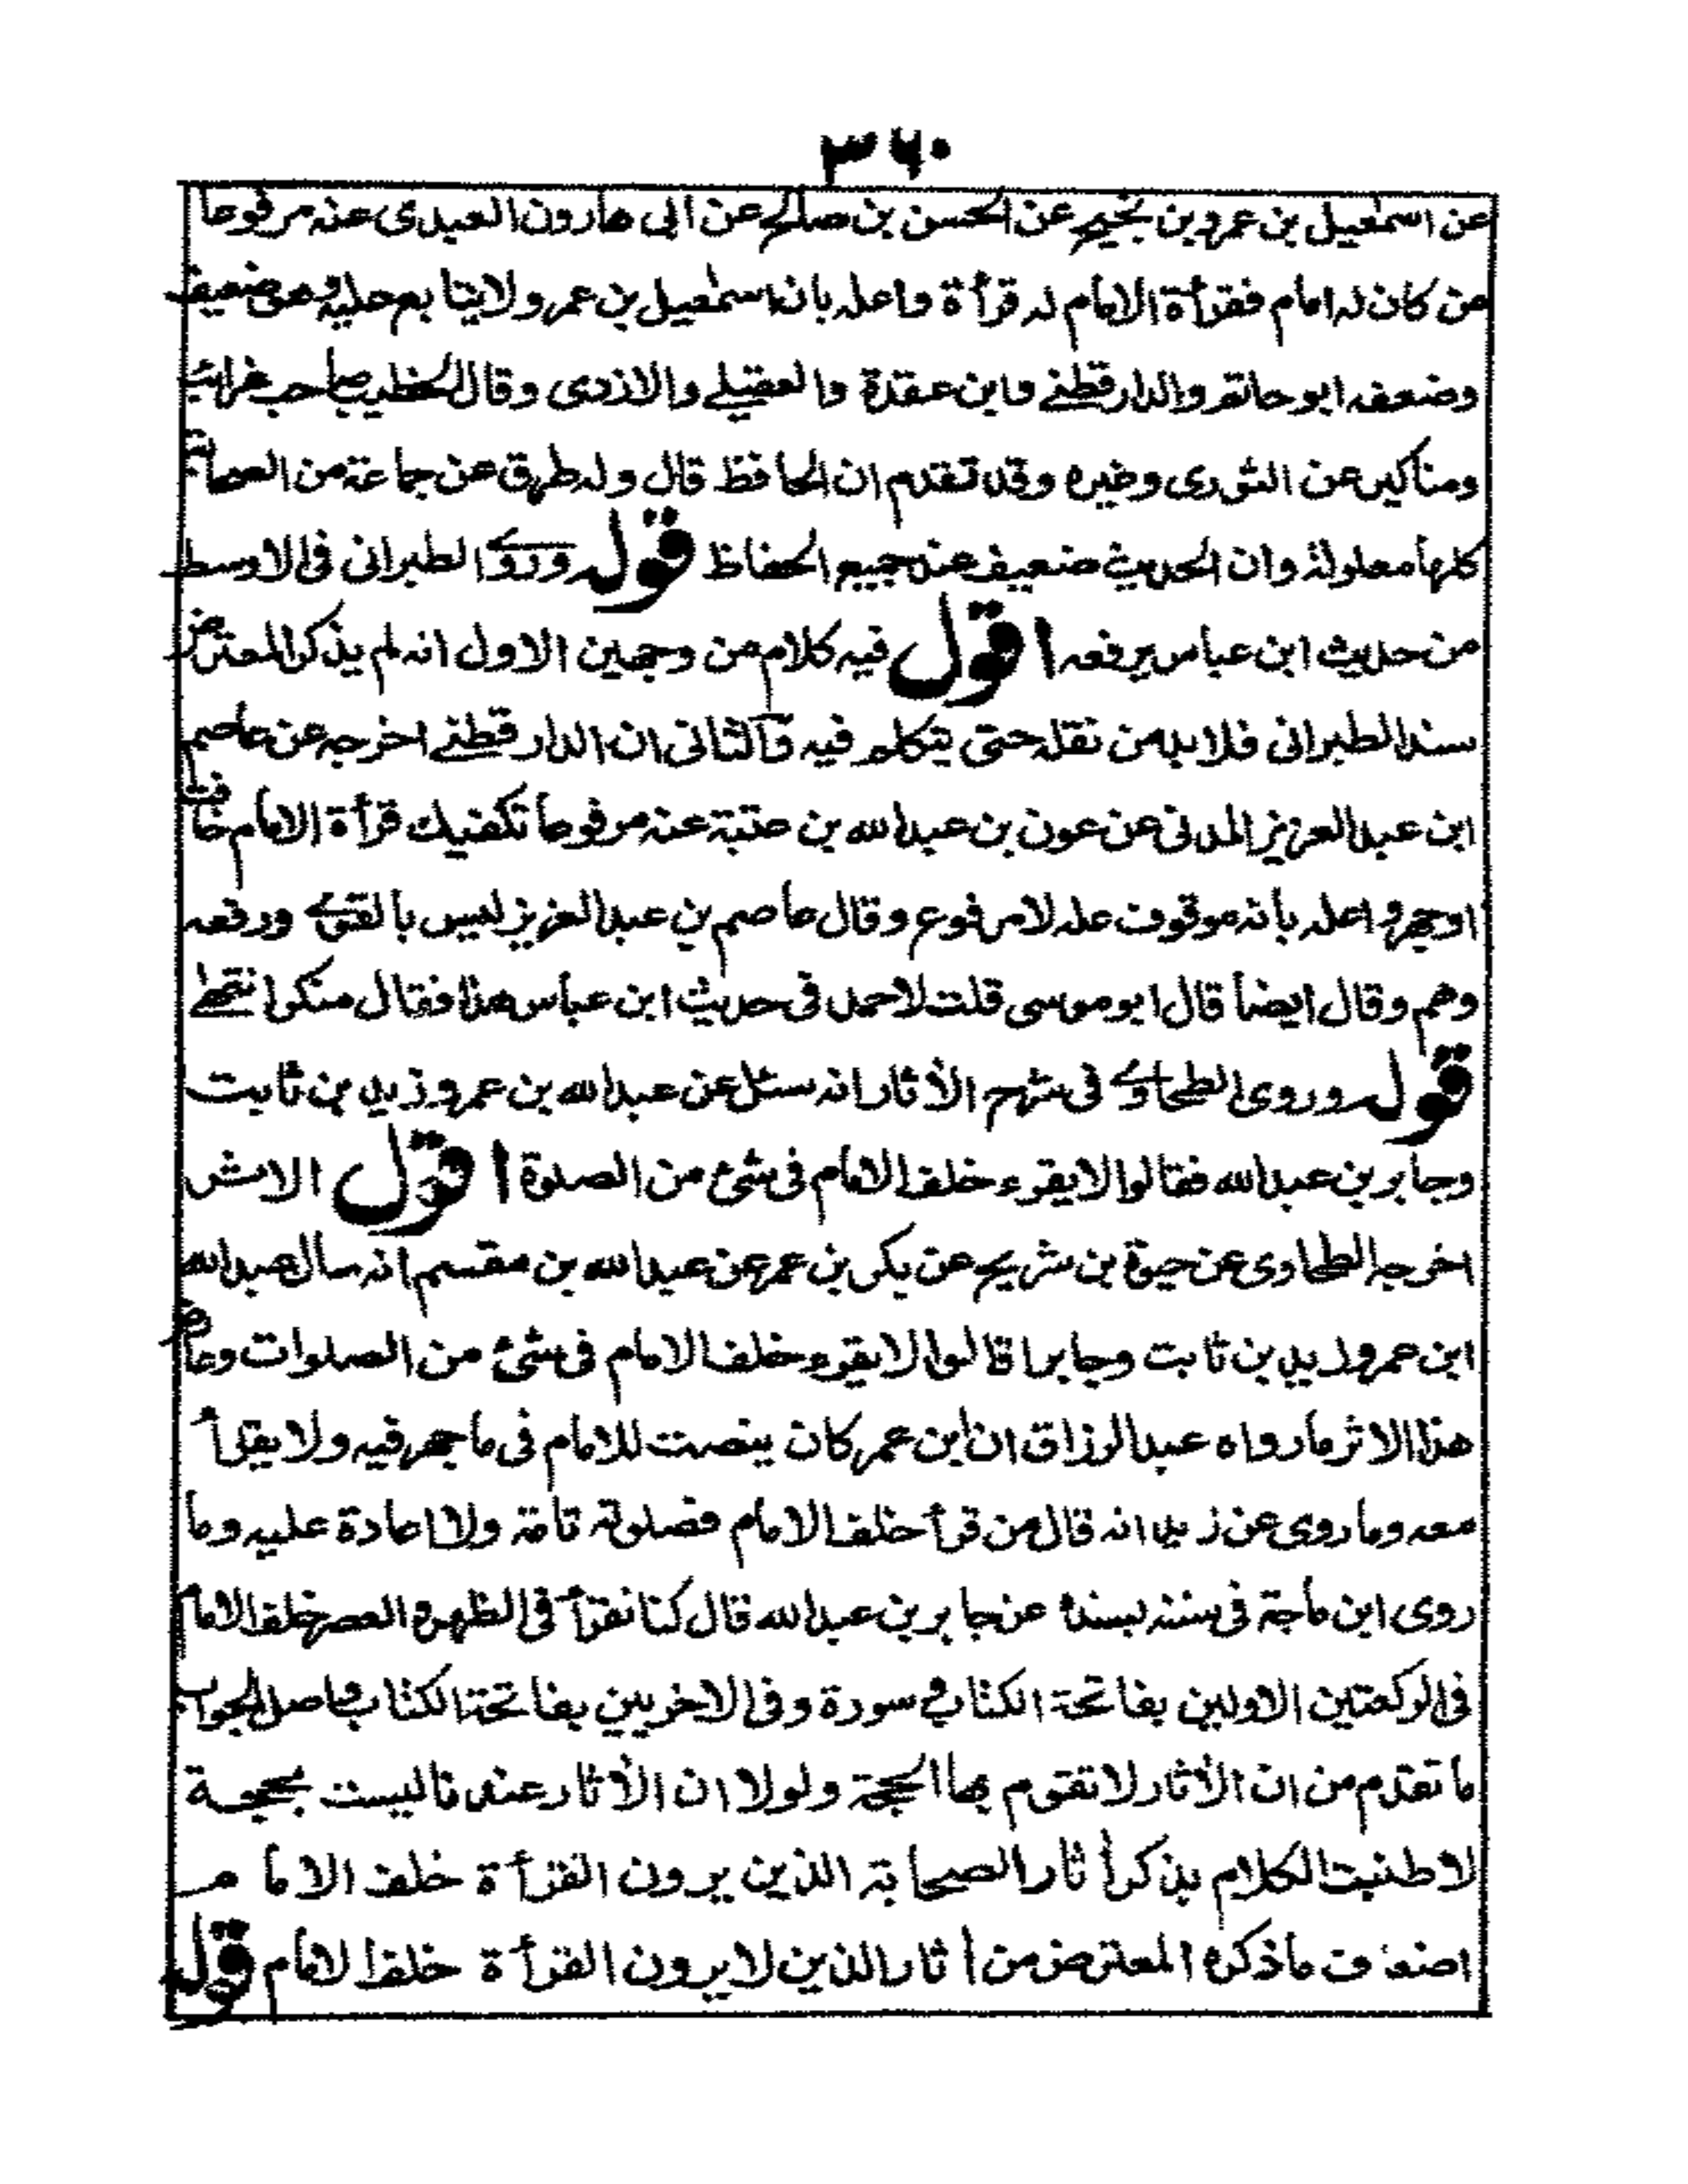 ٣٦٠
عن اسمٰعيل بن عمرو بن نجيح عن الحسن بن صالح عن ابى هارون العبدى عنه مرفوعا
من كان له امام فقرأة الامام له قرأة واعله بان اسمٰعيل بن عمرو لا يتابع عليه وهو ضعيف
وضعفه ابو حاتم والدارقطنے وابن عقدة والعقيلے والازدى وقال الخطيب صاحب غرائب
ومناكير عن الثورى وغيره وقد تقدم ان الحافظ قال وله طرق عن جماعة من الصحابة
كلها معلولة وان الحديث ضعيف عند جميع الحفاظ قوله وروے الطبرانى فى الاوسط
من حديث ابن عباس يرفعه اقول فيه كلام من وجهين الاول انه لم يذكر المعترض
سند الطبرانى فلا بد من نقله حتى يتكلم فيه والثانى ان الدارقطنے اخرجه عن عاصم
ابن عبد العزيز المدنى عن عون بن عبد الله بن عتبة عنه مرفوعا تكفيك قرأة الامام خافت
او جهر واعله بانه موقوف عله لا مرفوع وقال عاصم بن عبد العزيز ليس بالقوے ورفعه
وهم وقال ايضا قال ابو موسى قلت لاحمد فى حديث ابن عباس هذا فقال منكر انتهى
قوله وروى الطحاوے فى شرح الأثار انه سئل عن عبد الله بن عمر وزيد بن ثابت
وجابر بن عبد الله فقالوا لا يقرء خلف الامام فى شئ من الصلوة اقول الاثر
اخرجه الطحاوى عن حيوة بن شريح عن بكر بن عمر عن عبيد الله بن مقسم انه سال عبد الله
ابن عمر وزيد بن ثابت وجابرا قالوا لا يقرء خلف الامام فى شئ من الصلوات وعارض
هذا الاثر ما رواه عبد الرزاق ان ابن عمر كان ينصت للامام فى ما جهر فيه ولا يقرأ
معه وما روى عن زيد انه قال من قرأ خلف الامام فصلوته تامة ولا اعادة عليه وما
روى ابن ماجة فى سننه بسنده عن جابر بن عبد الله قال كنا نقرأ فى الظهر والعصر خلف الامام
فى الركعتين الاوليين بفاتحة الكتاب وسورة وفى الاخريين بفاتحة الكتاب وحاصل الجواب
ما تقدم من ان الأثار لا تقوم بها الحجة ولولا ان الأثار عندنا ليست بحجة
لاطنبت الكلام بذكر أثار الصحابة الذين يرون القرأة خلف الامام
اضعاف ما ذكره المعترض من أثار الذين لا يرون القرأة خلف الامام قوله